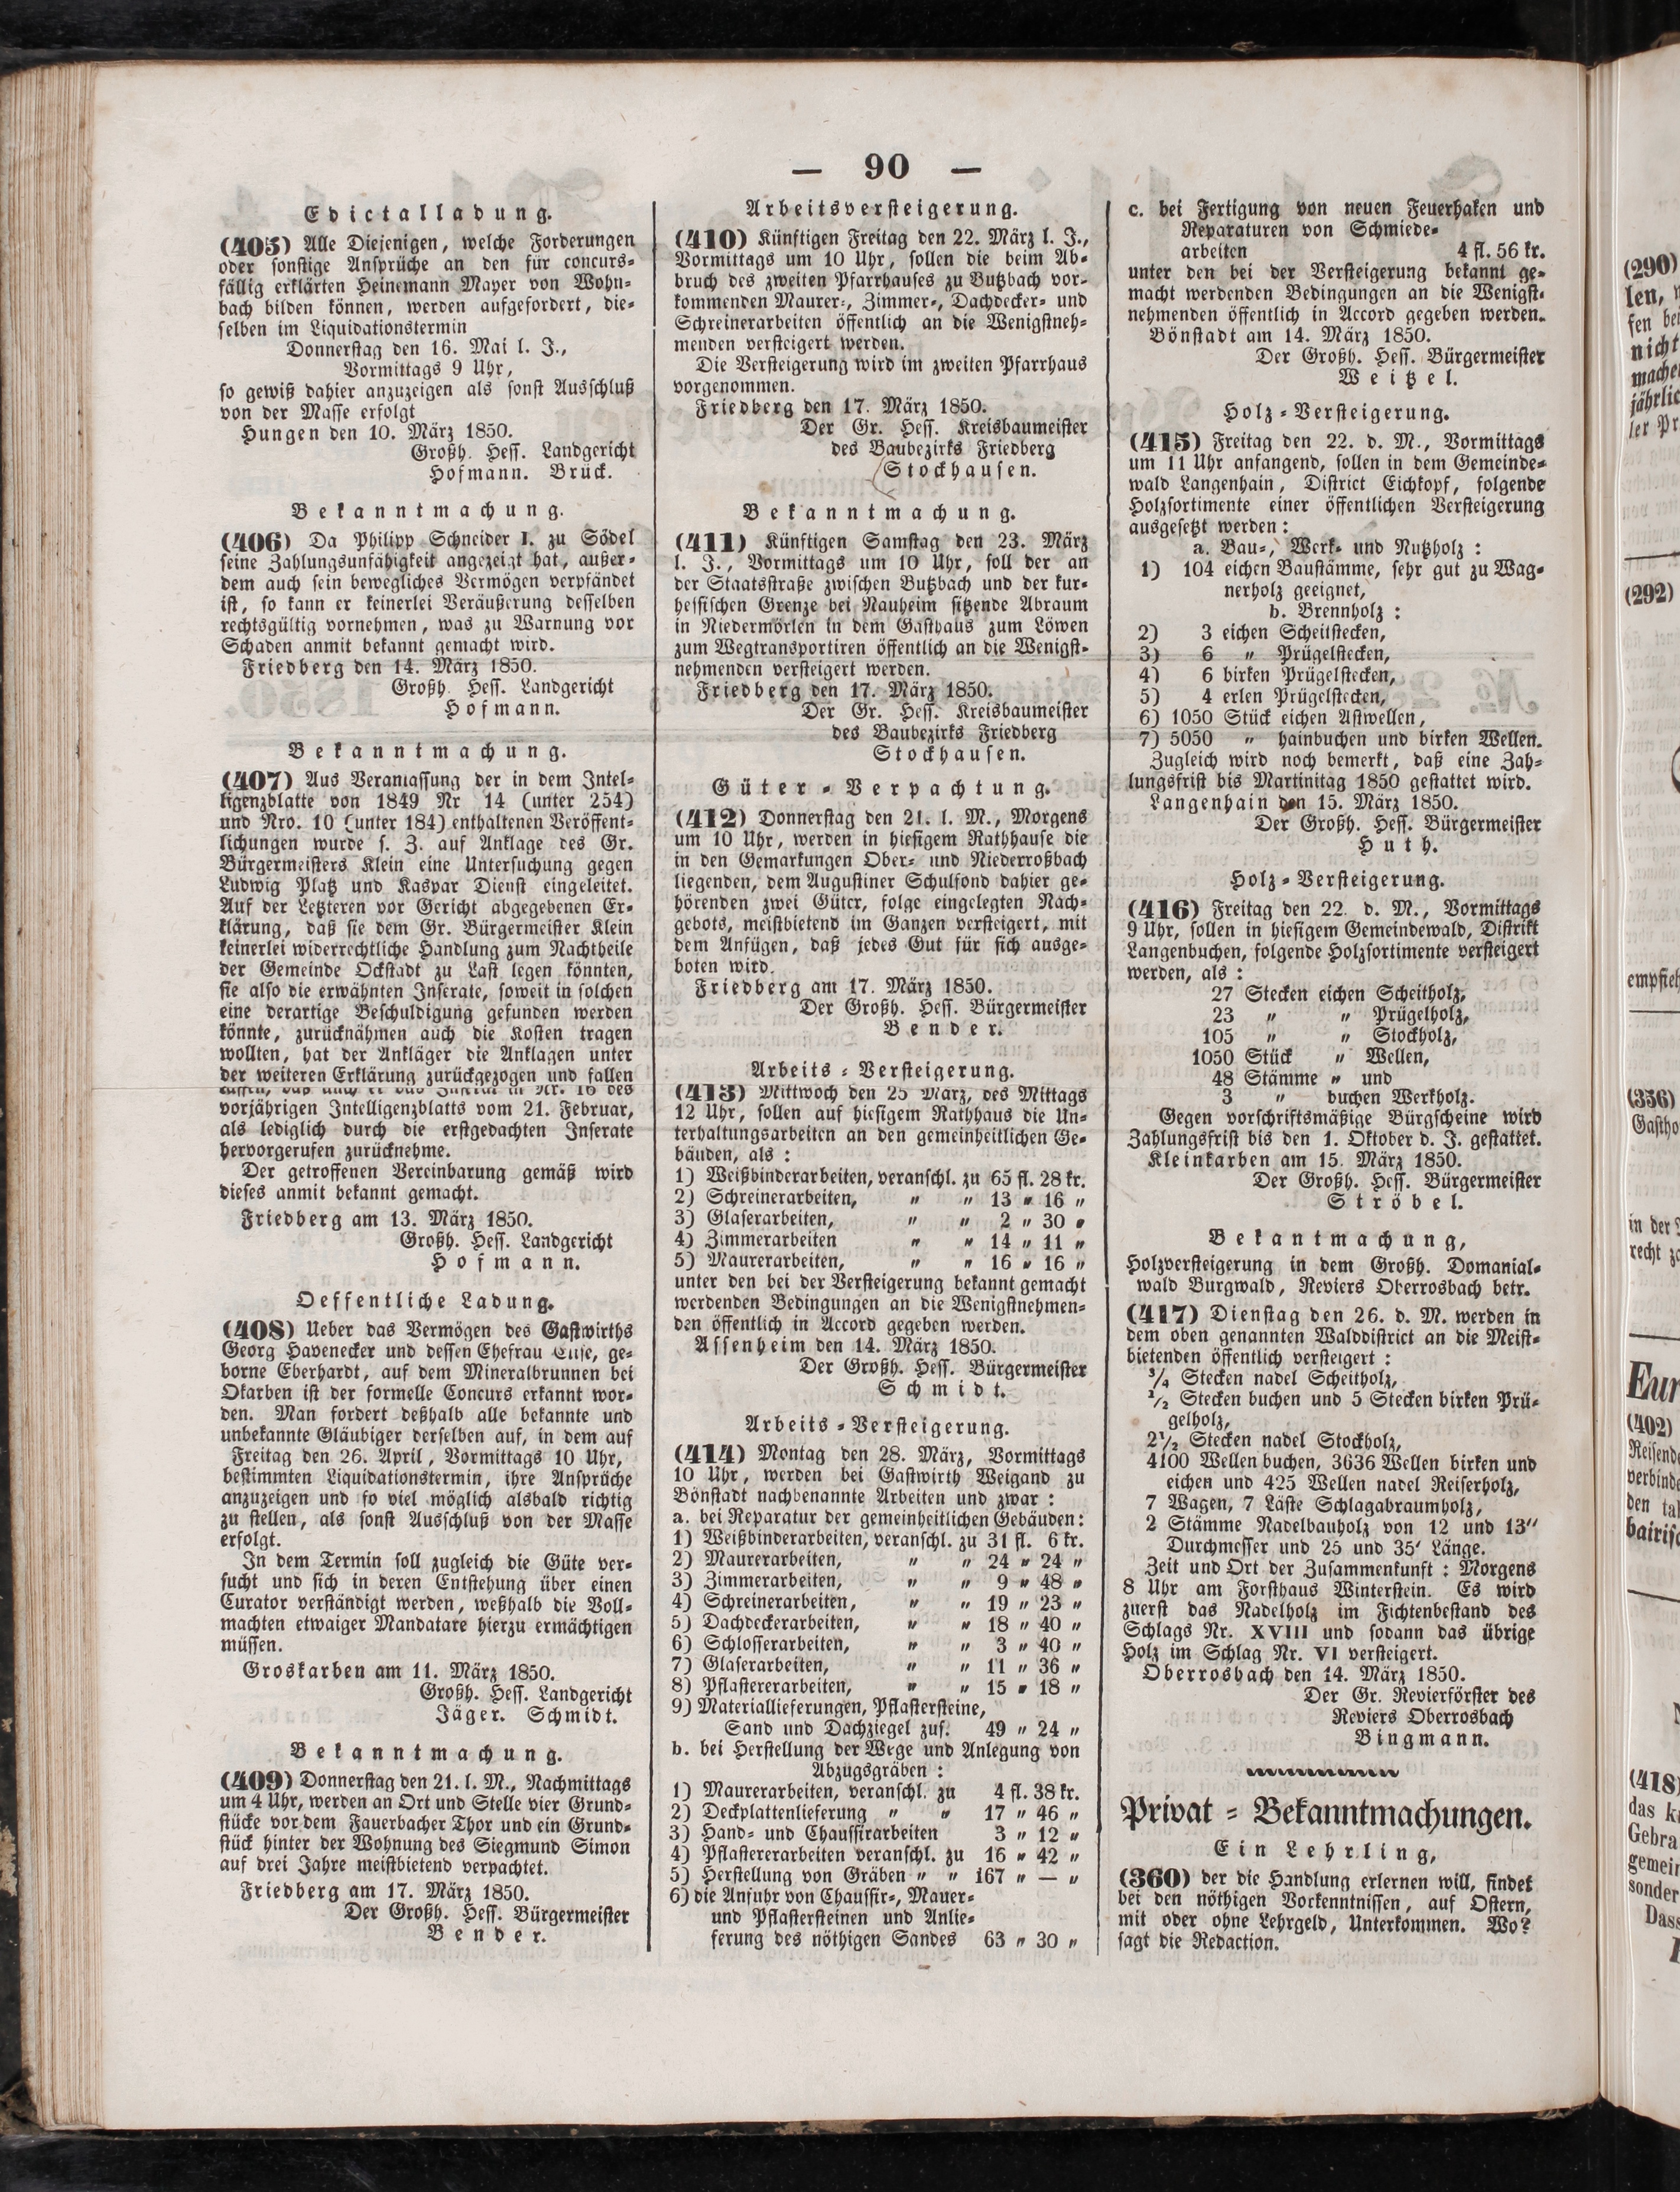 — 90 —
Edictalladung.
(405) Alle Diejenigen, welche Forderungen
oder sonstige Ansprüche an den für concurs-
fällig erklärten Heinemann Mayer von Wohn-
bach bilden können, werden aufgefordert, die-
selben im Liquidationstermin
Donnerstag den 16. Mai l. J.,
Vormittags 9 Uhr,
so gewiß dahier anzuzeigen als sonst Ausschluß
von der Masse erfolgt
Hungen den 10. März 1850.
Großh. Hess. Landgericht
Hofmann. Brück.
Bekanntmachung.
(406) Da Philipp Schneider I. zu Södel
seine Zahlungsunfähigkeit angezeigt hat, außer-
dem auch sein bewegliches Vermögen verpfändet
ist, so kann er keinerlei Veräußerung desselben
rechtsgültig vornehmen, was zu Warnung vor
Schaden anmit bekannt gemacht wird.
Friedberg den 14. März 1850.
Großh. Hess. Landgericht
Hofmann.
Bekanntmachung.
(407) Aus Veranlassung der in dem Intel-
ligenzblatte von 1849 Nr 14 (unter 254)
und Nro. 10 (unter 184) enthaltenen Veröffent-
lichungen wurde s. Z. auf Anklage des Gr.
Bürgermeisters Klein eine Untersuchung gegen
Ludwig Platz und Kaspar Dienst eingeleitet.
Auf der Letzteren vor Gericht abgegebenen Er-
klärung, daß sie dem Gr. Bürgermeister Klein
keinerlei widerrechtliche Handlung zum Nachtheile
der Gemeinde Ockstadt zu Last legen könnten,
sie also die erwähnten Inserate, soweit in solchen
eine derartige Beschuldigung gefunden werden
könnte, zurücknähmen auch die Kosten tragen
wollten, hat der Ankläger die Anklagen unter
der weiteren Erklärung zurückgezogen und fallen
lassen, daß auch er das Inserat in Nr. 16 des
vorjährigen Intelligenzblatts vom 21. Februar,
als lediglich durch die erstgedachten Inserate
hervorgerufen zurücknehme.
Der getroffenen Vereinbarung gemäß wird
dieses anmit bekannt gemacht.
Friedberg am 13. März 1850.
Großh. Hess. Landgericht
Hofmann.
Oeffentliche Ladung.
(408) Ueber das Vermögen des Gastwirths
Georg Havenecker und dessen Ehefrau Elise, ge-
borne Eberhardt, auf dem Mineralbrunnen bei
Okarben ist der formelle Concurs erkannt wor-
den. Man fordert deßhalb alle bekannte und
unbekannte Gläubiger derselben auf, in dem auf
Freitag den 26. April, Vormittags 10 Uhr,
bestimmten Liquidationstermin, ihre Ansprüche
anzuzeigen und so viel möglich alsbald richtig
zu stellen, als sonst Ausschluß von der Masse
erfolgt.
In dem Termin soll zugleich die Güte ver-
sucht und sich in deren Entstehung über einen
Curator verständigt werden, weßhalb die Voll-
machten etwaiger Mandatare hierzu ermächtigen
müssen.
Groskarben am 11. März 1850.
Großh. Hess. Landgericht
Jäger. Schmidt.
Bekanntmachung.
(409) Donnerstag den 21. l. M., Nachmittags
um 4 Uhr, werden an Ort und Stelle vier Grund-
stücke vor dem Fauerbacher Thor und ein Grund-
stück hinter der Wohnung des Siegmund Simon
auf drei Jahre meistbietend verpachtet.
Friedberg am 17. März 1850.
Der Großh. Hess. Bürgermeister
Bender.
Arbeitsversteigerung.
(410) Künftigen Freitag den 22. März l. J.,
Vormittags um 10 Uhr, sollen die beim Ab-
bruch des zweiten Pfarrhauses zu Butzbach vor-
kommenden Maurer-, Zimmer-, Dachdecker- und
Schreinerarbeiten öffentlich an die Wenigstneh-
menden versteigert werden.
Die Versteigerung wird im zweiten Pfarrhaus
vorgenommen.
Friedberg den 17. März 1850.
Der Gr. Hess. Kreisbaumeister
des Baubezirks Friedberg
Stockhausen.
Bekanntmachung.
(411) Künftigen Samstag den 23. März
l. J., Vormittags um 10 Uhr, soll der an
der Staatsstraße zwischen Butzbach und der kur-
hessischen Grenze bei Nauheim sitzende Abraum
in Niedermörlen in dem Gasthaus zum Löwen
zum Wegtransportiren öffentlich an die Wenigst-
nehmenden versteigert werden.
Friedberg den 17. März 1850.
Der Gr. Hess. Kreisbaumeister
des Baubezirks Friedberg
Stockhausen.
Güter-Verpachtung.
(412) Donnerstag den 21. l. M., Morgens
um 10 Uhr, werden in hiesigem Rathhause die
in den Gemarkungen Ober- und Niederroßbach
liegenden, dem Augustiner Schulfond dahier ge-
hörenden zwei Güter, folge eingelegten Nach-
gebots, meistbietend im Ganzen versteigert, mit
dem Anfügen, daß jedes Gut für sich ausge-
boten wird.
Friedberg am 17. März 1850.
Der Großh. Hess. Bürgermeister
Bender.
Arbeits-Versteigerung.
(413) Mittwoch den 25 März, des Mittags
12 Uhr, sollen auf hiesigem Rathhaus die Un-
terhaltungsarbeiten an den gemeinheitlichen Ge-
bäuden, als:
1) Weißbinderarbeiten, veranschl. zu 65 fl. 28 kr.
2) Schreinerarbeiten, " " 13 " 16 "
3) Glaserarbeiten, " " 2 " 30 "
4) Zimmerarbeiten " " 14 " 11 "
5) Maurerarbeiten, " " 16 " 16 "
unter den bei der Versteigerung bekannt gemacht
werdenden Bedingungen an die Wenigstnehmen-
den öffentlich in Accord gegeben werden.
Assenheim den 14. März 1850.
Der Großh. Hess. Bürgermeister
Schmidt.
Arbeits-Versteigerung.
(414) Montag den 28. März, Vormittags
10 Uhr, werden bei Gastwirth Weigand zu
Bönstadt nachbenannte Arbeiten und zwar:
a. bei Reparatur der gemeinheitlichen Gebäuden:
1) Weißbinderarbeiten, veranschl. zu 31 fl. 6 kr.
2) Maurerarbeiten, " " 24 " 24 "
3) Zimmerarbeiten, " " 9 " 48 "
4) Schreinerarbeiten, " " 19 " 23 "
5) Dachdeckerarbeiten, " " 18 " 40 "
6) Schlosserarbeiten, " " 3 " 40 "
7) Glaserarbeiten, " " 11 " 36 "
8) Pflastererarbeiten, " " 15 " 18 "
9) Materiallieferungen, Pflastersteine,
Sand und Dachziegel zus. 49 " 24 "
b. bei Herstellung der Wege und Anlegung von
Abzugsgräben:
1) Maurerarbeiten, veranschl. zu 4 fl. 38 kr.
2) Deckplattenlieferung " " 17 " 46 "
3) Hand- und Chaussirarbeiten 3 " 12 "
4) Pflastererarbeiten veranschl. zu 16 " 42 "
5) Herstellung von Gräben " " 167 " — "
6) die Anfuhr von Chaussir-, Mauer-
und Pflastersteinen und Anlie-
ferung des nöthigen Sandes 63 " 30 "
c. bei Fertigung von neuen Feuerhaken und
Reparaturen von Schmiede-
arbeiten 4 fl. 56 kr.
unter den bei der Versteigerung bekannt ge-
macht werdenden Bedingungen an die Wenigst-
nehmenden öffentlich in Accord gegeben werden.
Bönstadt am 14. März 1850.
Der Großh. Hess. Bürgermeister
Weitzel.
Holz-Versteigerung.
(415) Freitag den 22. d. M., Vormittags
um 11 Uhr anfangend, sollen in dem Gemeinde-
wald Langenhain, District Eichkopf, folgende
Holzsortimente einer öffentlichen Versteigerung
ausgesetzt werden:
a. Bau-, Werk- und Nutzholz:
1) 104 eichen Baustämme, sehr gut zu Wag-
nerholz geeignet,
b. Brennholz:
2) 3 eichen Scheitstecken,
3) 6 " Prügelstecken,
4) 6 birken Prügelstecken,
5) 4 erlen Prügelstecken,
6) 1050 Stück eichen Astwellen,
7) 5050 " hainbuchen und birken Wellen.
Zugleich wird noch bemerkt, daß eine Zah-
lungsfrist bis Martinitag 1850 gestattet wird.
Langenhain den 15. März 1850.
Der Großh. Hess. Bürgermeister
Huth.
Holz-Versteigerung.
(416) Freitag den 22. d. M., Vormittags
9 Uhr, sollen in hiesigem Gemeindewald, Distrikt
Langenbuchen, folgende Holzsortimente versteigert
werden, als:
27 Stecken eichen Scheitholz,
23 " " Prügelholz,
105 " " Stockholz,
1050 Stück " Wellen,
48 Stämme " und
3 " buchen Werkholz.
Gegen vorschriftsmäßige Bürgscheine wird
Zahlungsfrist bis den 1. Oktober d. J. gestattet.
Kleinkarben am 15. März 1850.
Der Großh. Hess. Bürgermeister
Ströbel.
Bekantmachung,
Holzversteigerung in dem Großh. Domanial-
wald Burgwald, Reviers Oberrosbach betr.
(417) Dienstag den 26. d. M. werden in
dem oben genannten Walddistrict an die Meist-
bietenden öffentlich versteigert:
3/4 Stecken nadel Scheitholz,
1/2 Stecken buchen und 5 Stecken birken Prü-
gelholz,
2 1/2 Stecken nadel Stockholz,
4100 Wellen buchen, 3636 Wellen birken und
eichen und 425 Wellen nadel Reiserholz,
7 Wagen, 7 Läste Schlagabraumholz,
2 Stämme Nadelbauholz von 12 und 13"
Durchmesser und 25 und 35' Länge.
Zeit und Ort der Zusammenkunft: Morgens
8 Uhr am Forsthaus Winterstein. Es wird
zuerst das Nadelholz im Fichtenbestand des
Schlags Nr. XVIII und sodann das übrige
Holz im Schlag Nr. VI versteigert.
Oberrosbach den 14. März 1850.
Der Gr. Revierförster des
Reviers Oberrosbach
Bingmann.
Privat-Bekanntmachungen.
Ein Lehrling,
(360) der die Handlung erlernen will, findet
bei den nöthigen Vorkenntnissen, auf Ostern,
mit oder ohne Lehrgeld, Unterkommen. Wo?
sagt die Redaction.
(290)
len,
fen bei
nicht
jährlic
ler Pr
(292)
empfieh
(356)
Gastho
in der
recht
Eur
(402)
Reisend
verbind
den
bairisc
(418)
das
Gebra
gemein
sonder
Dass